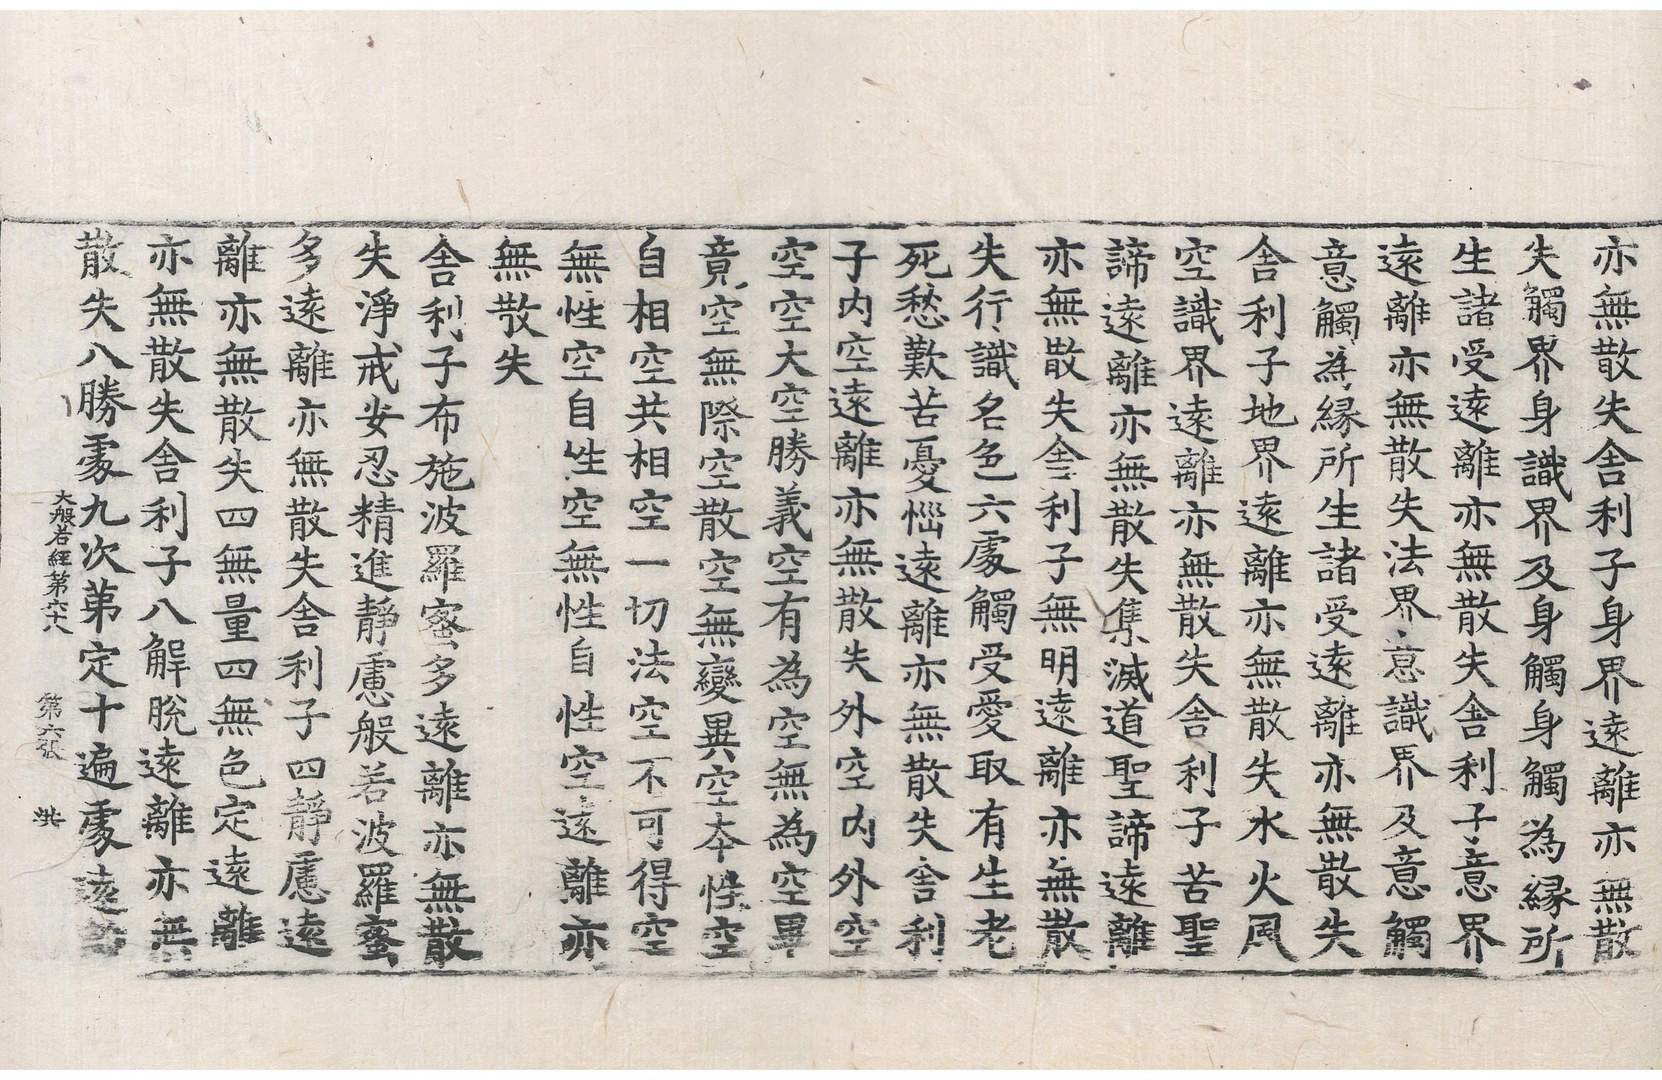 亦無散失舍利子身界遠離亦無散
失觸界身識界及身觸身觸為縁所
生諸受遠離亦無散失舍利子意界
遠離亦無散失法界意識界及意觸
意觸為縁所生諸受遠離亦無散失
舍利子地界遠離亦無散失水火風
空識界遠離亦無散失舍利子苦聖
諦遠離亦無散失集滅道聖諦遠離
亦無散失舍利子無明遠離亦無散
失行識名色六處觸受愛取有生老
死愁歎苦憂惱遠離亦無散失舍利
子内空遠離亦無散失外空内外空
空空大空勝義空有為空無為空畢
竟空無際空散空無變異空本性空
自相空共相空一切法空不可得空
無性空自性空無性自性空遠離亦
無散失
舍利子布施波羅蜜多遠離亦無散
失淨戒安忍精進靜慮般若波羅蜜
多遠離亦無散失舍利子四靜慮遠
離亦無散失四無量四無色定遠離
亦無散失舍利子八解脫遠離亦無
散失八勝處九次第定十遍處遠
大般若經第六十八 第六張 洪